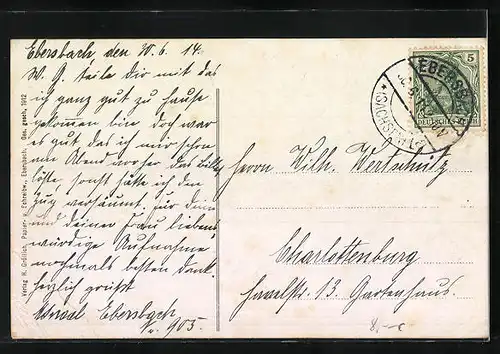 Ebersbach, den 10.6.14.
W. G. teile Dir mit das
ich ganz gut zu Hause
gekommen bin doch war
es gut das ich mir schon
am Abend vorher das Billet
löste sonst hätte ich den
Zug versäumt. für Deine
und deiner Frau liebens
würdige Aufnahme
nochmals besten Dank.
herzlich grüsst
Ebersbach
No. 905.
Herrn Wilh.
Charlottenburg
13 Gartenhaus.
5
DEUTSCHES REICH
EBERSB
(SACHSEN)
Verlag H. Gröllich, Papier- u. Schreibw., Ebersbach. Ges. gesch. 1912